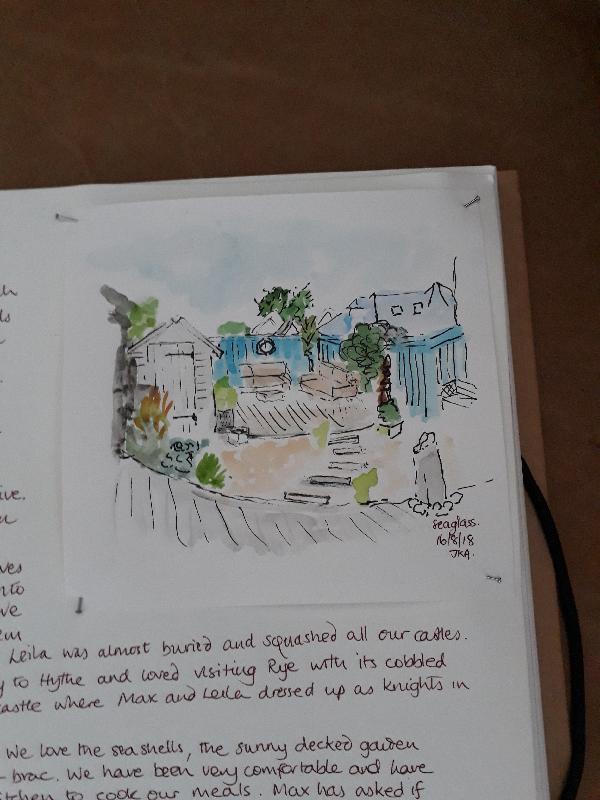 seaglass.
16/8/18
JKA.
ive.
ves
nto
ve
em
Leila was almost buried and squashed all our castles.
y to Hythe and loved visiting Rye with its cobbled
castle where Max and Leila dressed up as knights in
We love the seashells, the sunny decked garden
- brac. We have been very comfortable and have
itchen to cook our meals. Max has asked if